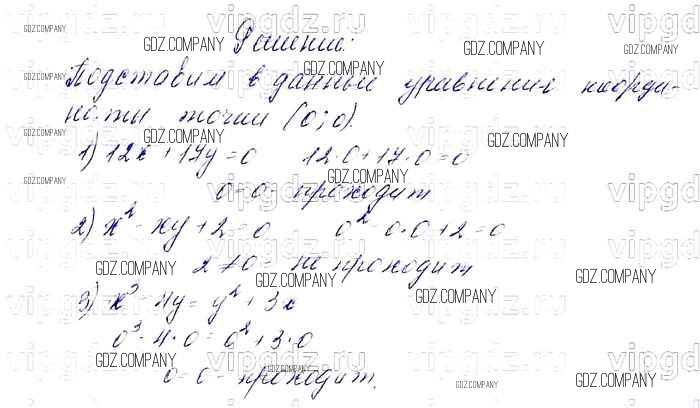 Решение:
Подставим в данные уравнения коорди-
наты точки (0; 0).
1) 12x + 17y = 0 12·0 + 17·0 = 0
0 = 0 - проходит
2) x² - xy + 2 = 0 0² - 0·0 + 2 = 0
2 ≠ 0 - не проходит
3) x³ - 4y = y² + 3x
0³ - 4·0 = 0² + 3·0
0 = 0 - проходит.
vipgdz.ru
GDZ.COMPANY